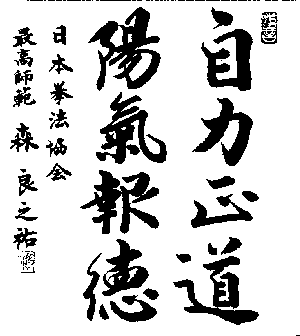 自力正道
陽氣報徳
日本拳法協会
最高師範 森良之祐